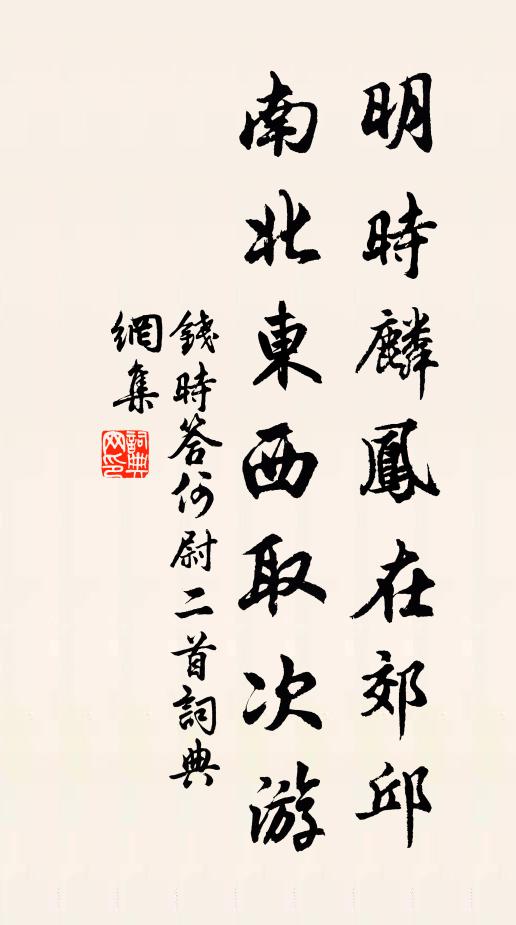 明時麟鳳在郊邱
南北東西取次游
錢時答何尉二首詞典
網集
詞典網印